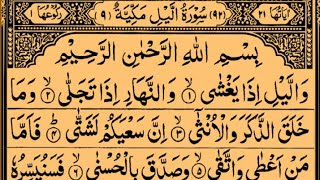 اٰیَاتُهَا ٢١ (٩٢) سُوْرَةُ الَّیْلِ مَكِّیَّةٌ (٩) رُكُوْعُهَا
بِسْمِ اللهِ الرَّحْمٰنِ الرَّحِیْمِ
وَالَّیْلِ اِذَا یَغْشٰى ۙ‏﴿١﴾ وَالنَّهَارِ اِذَا تَجَلّٰى ۙ‏﴿٢﴾ وَمَا
خَلَقَ الذَّكَرَ وَالْاُنْثٰۤى ۙ‏﴿٣﴾ اِنَّ سَعْیَكُمْ لَشَتّٰى ؕ‏﴿٤﴾ فَاَمَّا
مَنْ اَعْطٰى وَاتَّقٰى ۙ‏﴿٥﴾ وَصَدَّقَ بِالْحُسْنٰى ۙ‏﴿٦﴾ فَسَنُیَسِّرُهٗ